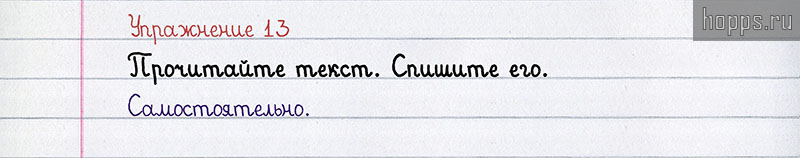 Упражнение 13
hopps.ru
Прочитайте текст. Спишите его.
Самостоятельно.